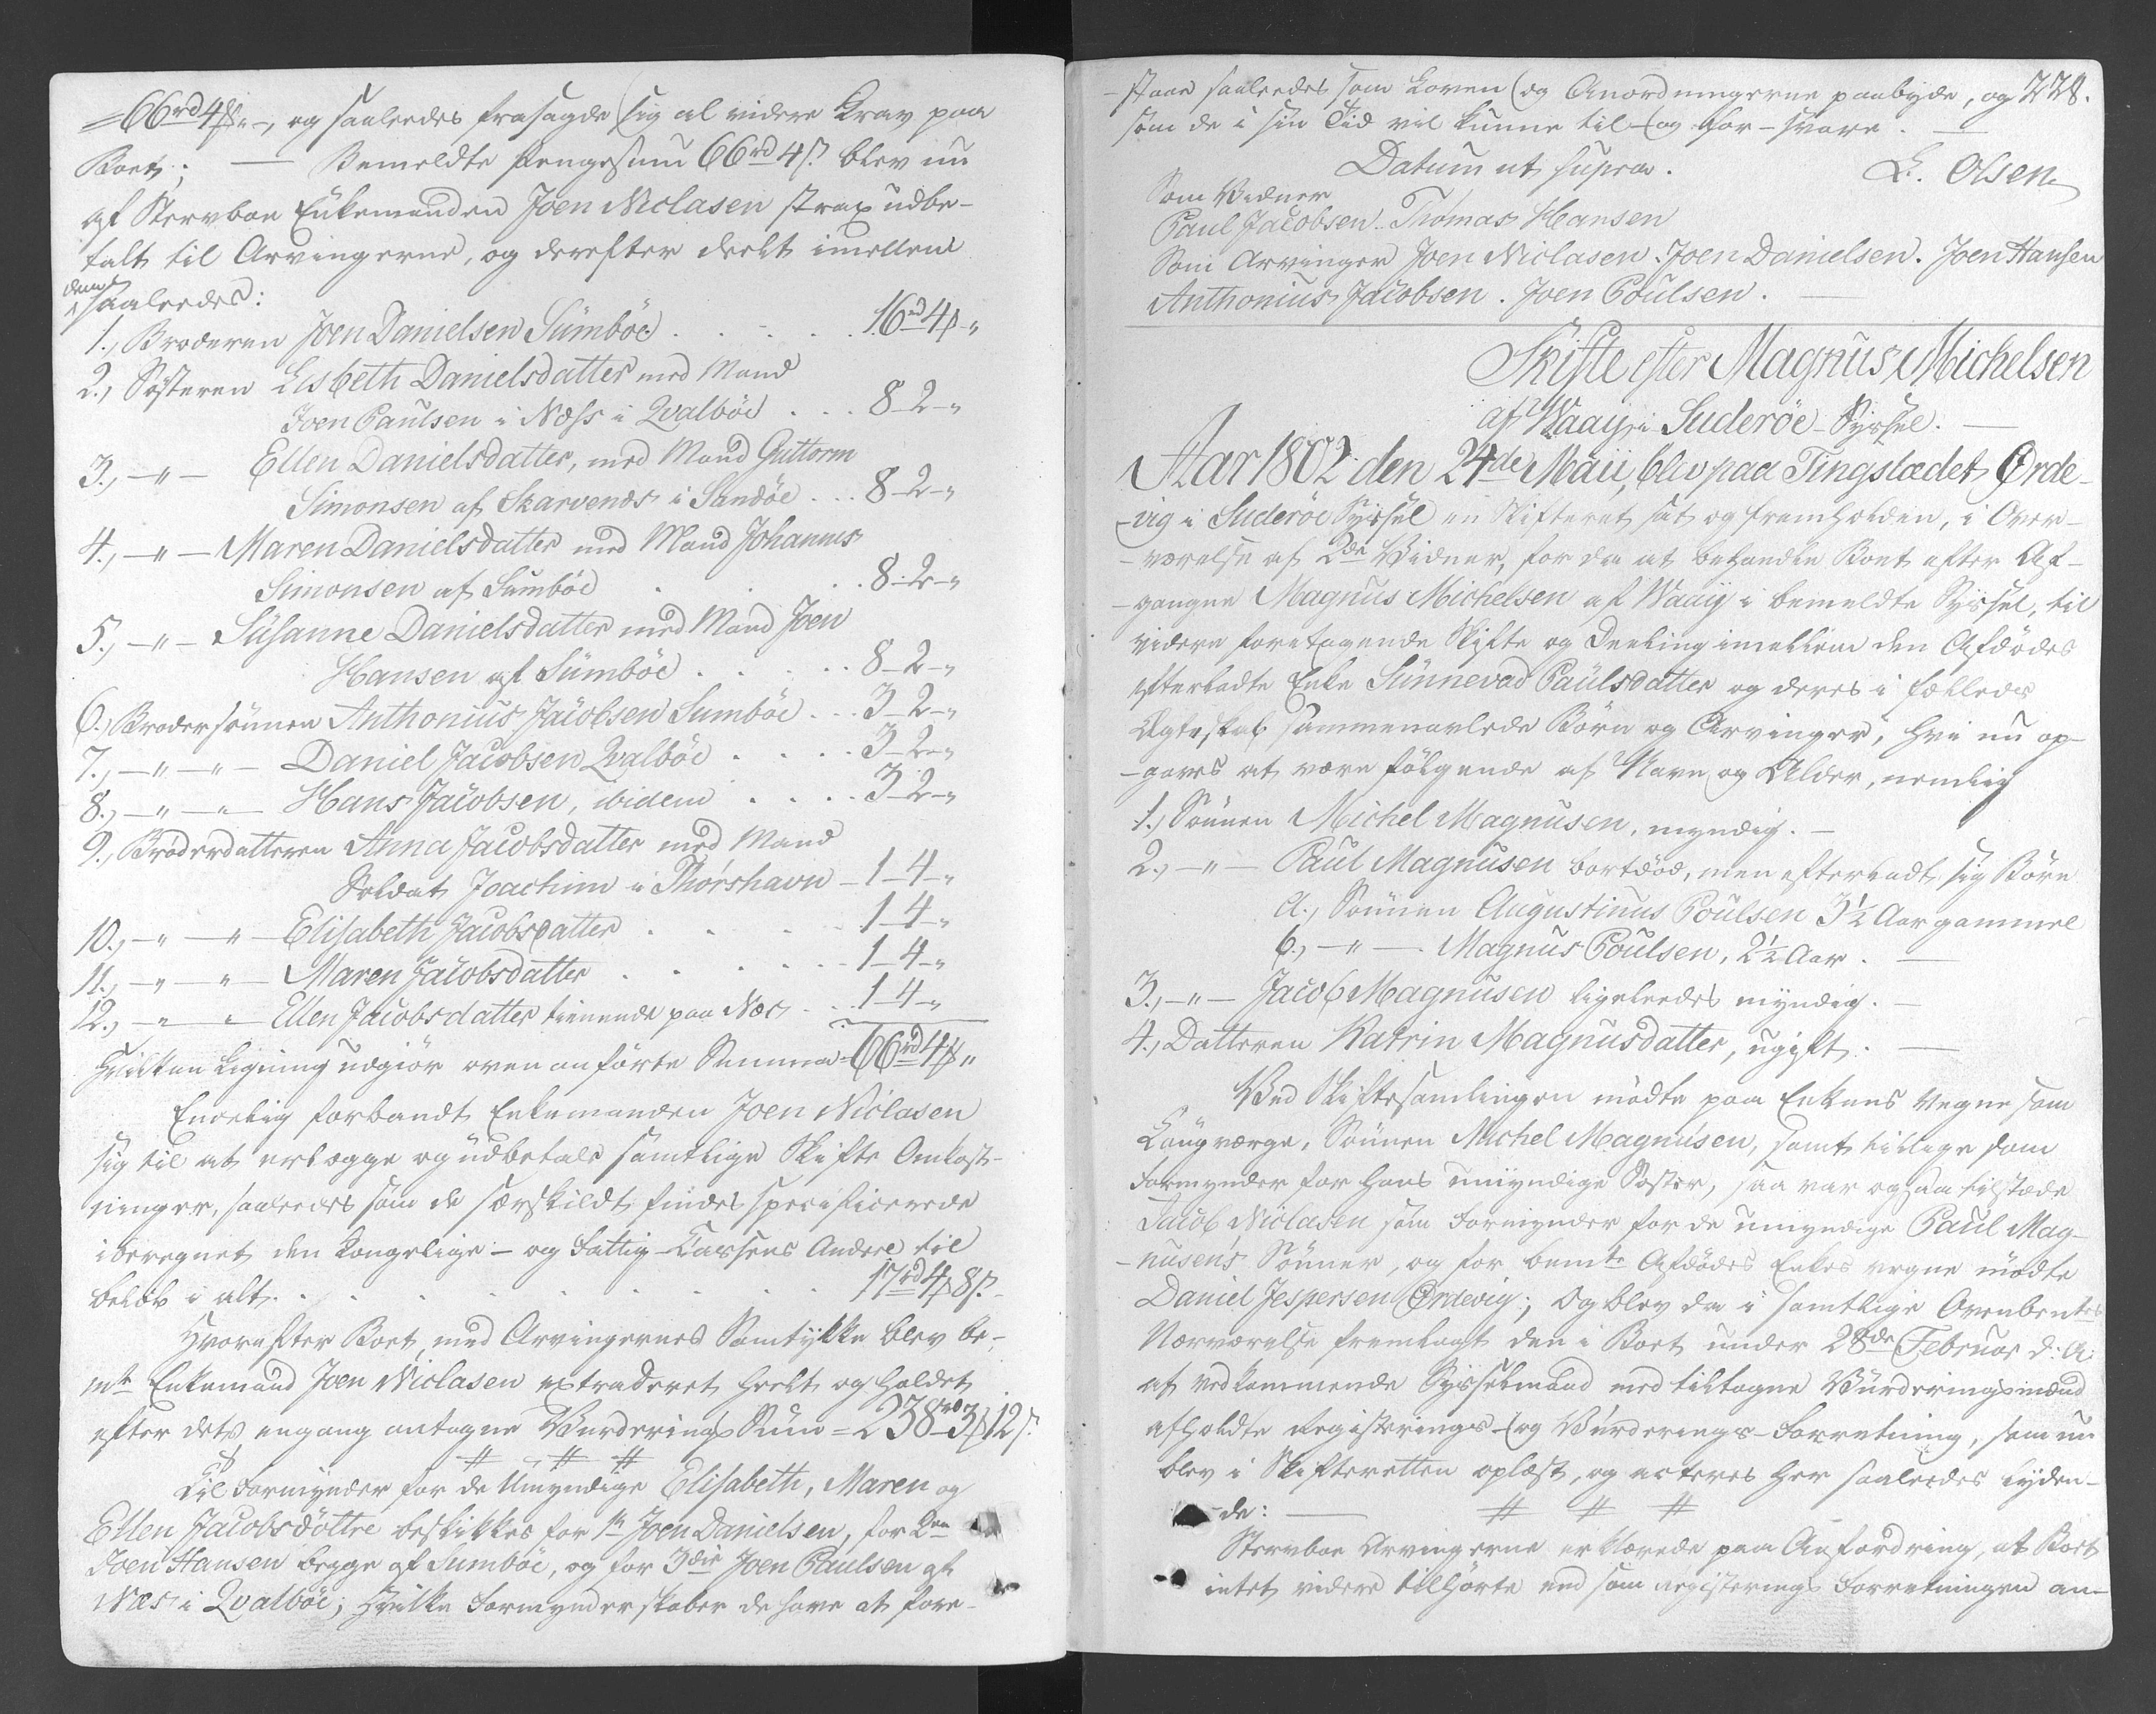 =66rd4ß"-, og saaleedes frasagde sig al videre Krav paa
Boet; — Bemeldte Pengesum 66rd4ß blev nu
af Stervboe Enkemanden Joen Niclasen strax udbe-
talt til Arvingerne, og derefter deelt imellem
dem
saaleedes:
1., Broderen Joen Danielsen Sumböe . . . . . 16rd4ß-"
2., Systeren Lisbeth Danielsdatter med Mand
Joen Paulsen i Næss i Qvalböe . . . 8-2-"
3., -"- Ellen Danielsdatter, med Mand Guttorm
Simonsen af Skarvenæs i Sandöe . . . 8-2-"
4., -"- Maren Danielsdatter med Mand Johannes
Simonsen af Sumböe . . . . 8-2-"
5., -"- Susanne Danielsdatter med Mand Joen
Hansen af Sumböe . . . . . 8-2-"
6., Brodersönnen Anthonius Jacobsen Sumböe . . . 3-2-"
7., -"-"- Daniel Jacobsen Qvalböe . . . . 3-2-"
8., -"-"- Hans Jacobsen, ibidem . . . . 3-2-"
9., Broderdatteren Anna Jacobsdatter med Mand
Soldat Joachim i Thorshavn - 1-4-"
10., -"-"- Elisabeth Jacobsdatter . . . . 1-4-"
11., -"-"- Maren Jacobsdatter . . . . . 1-4-"
12., -"-"- Ellen Jacobsdatter tienende paa Næs . . 1-4-"
Hvilken Ligning udgiör oven anförte Summa = 66rd4ß"
Endelig forbandt Enkemanden Joen Niclasen
sig til at erlægge og udbetale samtlige Skifte Omkost-
ninger, saaleedes som de særskildt findes specificerede
iberegnet den Kongelige- og Fattig-Cassens Andeel til
belöb i alt . . . . . . . . . 17rd4ß8s
Hvorefter Boet, med Arvingernes Samtykke blev be-
mte Enkemand Joen Niclasen extraderet heelt og holdet
efter dets engang antagne Vurderings Sum = 238rd3ß12s
# # #
Til Formynder for de Umyndige Elisabeth, Maren og
Ellen Jacobsdöttre beskikkes for 1te Joen Danielsen, for 2den
Joen Hansen begge af Sumböe, og for 3die Joen Paulsen af
Næs i Qvalböe; Hvilke Formynderskaber de have at fore-
-staae saaleedes som Loven og Anordningerne paabyde, og 228.
som de i sin Tid vil kunne til- og for-svare. —
Datum ut supra. L. Olsen
Som Vidner
Paul Jacobsen. Thomas Hansen
Som Arvinger Joen Niclasen. Joen Danielsen. Joen Hansen
Anthonius Jacobsen. Joen Poulsen. —
Skifte efter Magnus Michelsen
af Waaij i Suderöe Syssel. —
Aar 1802 den 24de Maii, blev paa Tingstædet Örde-
-vig i Suderöe Syssel en Skifteret sat og fremholden, i Over-
-værelse af 2de Vidner, for da at behandle Boet efter Af-
-gangne Magnus Michelsen af Waaij i bemeldte Syssel, til
videre foretagende Skifte og Deeling imellem den Afdödes
efterladte Enke Sunnevad Paulsdatter og deres i fælleds
Ægteskab sammenavlede Börn og Arvinger, hvi nu op-
-gaves at være fölgende af Navn og Alder, nemlig
1., Sönnen Michel Magnusen, myndig. —
2., -"- Paul Magnusen bortdöd, men efterladt sig Börn
a., Sönnen Augustinus Poulsen 3½ Aar gammel
b., -"- Magnus Poulsen, 2½ Aar. —
3., -"- Jacob Magnusen ligeleedes myndig. —
4., Datteren Katrin Magnusdatter, ugift. —
Ved Skiftesamlingen mödte paa Enkens Vegne som
Laugværge, Sönnen Michel Magnusen, samt tillige som
Formynder for hans umyndige Söster, saa var ogsaa tilstæde
Jacob Niclasen som Formynder for de umyndige Paul Mag-
-nusen's Sönner, og for bemte Afdödes Enkes vegne mödte
Daniel Jespersen Ördevig; Og blev da i samtlige Ovenbentes
Nærværelse fremlagt den i Boet under 28de Februar d: A:
af vedkommende Sysselmand med tiltagne Vurderingsmænd
afholdte Registerings- og Vurderings-Forretning, som nu
blev i Skifteretten oplæst, og acteres her saaleedes lyden-
-de: — # # #
Stervboe Arvingerne erklærede paa Anfordring, at Boet
intet videre tilhörte end som Registerings Forretningen an-